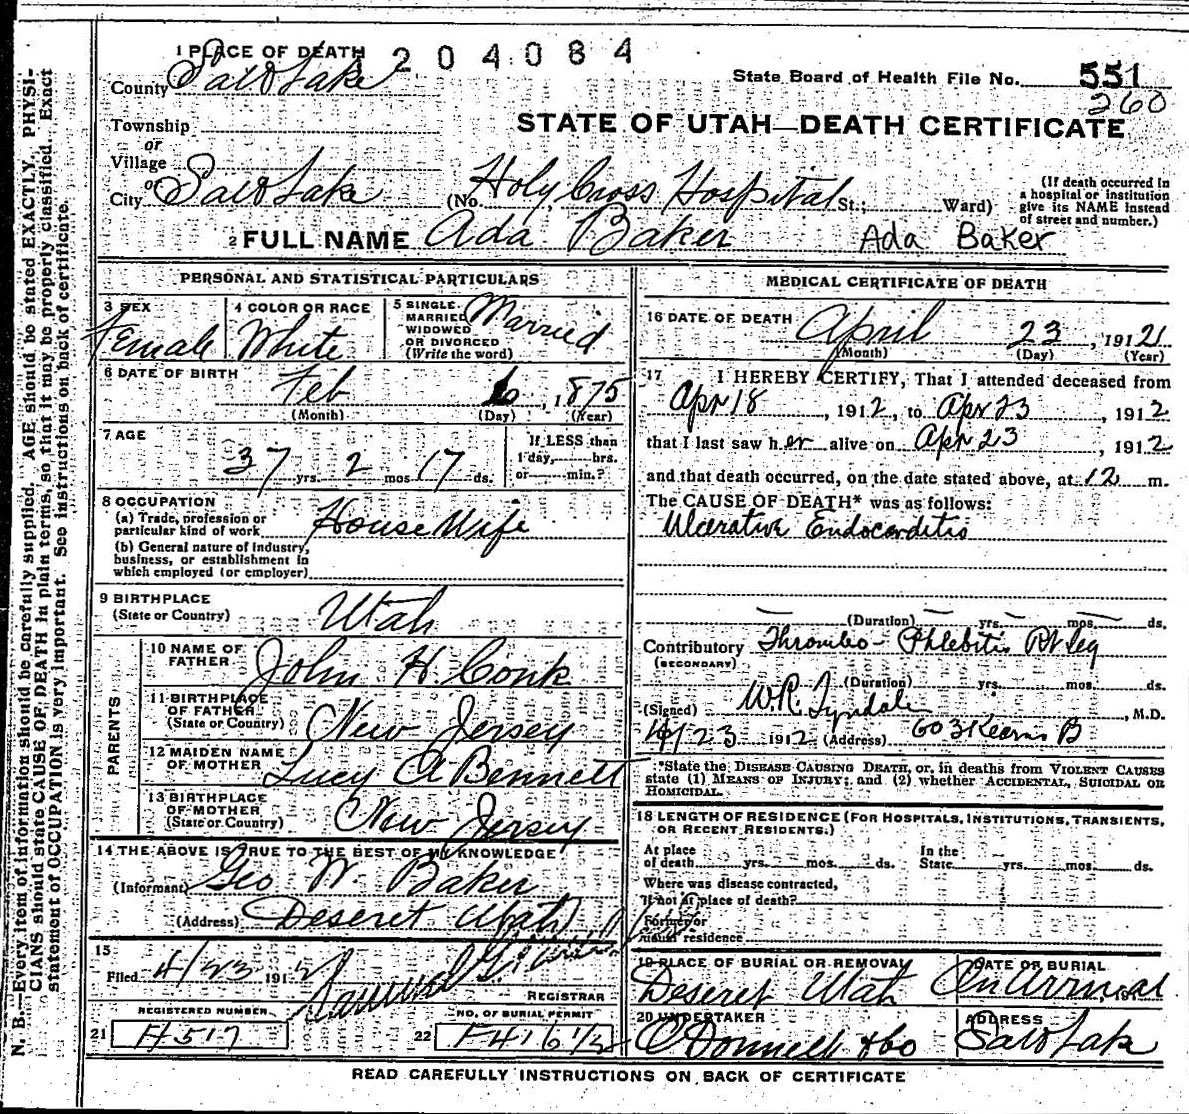 N. B.—Every item of information should be carefully supplied. AGE should be stated EXACTLY. PHYSI-
CIANS should state CAUSE OF DEATH in plain terms, so that it may be properly classified. Exact
statement of OCCUPATION is very important. See instructions on back of certificate.
1 PLACE OF DEATH
204084
County Salt Lake
State Board of Health File No. 551
260
Township
or
Village
or
City Salt Lake
STATE OF UTAH—DEATH CERTIFICATE
(No. Holy Cross Hospital St.; Ward)
(If death occurred in
a hospital or institution
give its NAME instead
of street and number.)
2 FULL NAME Ada Baker Ada Baker
PERSONAL AND STATISTICAL PARTICULARS
3 SEX
Female
4 COLOR OR RACE
White
5 SINGLE
MARRIED
WIDOWED
OR DIVORCED
(Write the word)
Married
6 DATE OF BIRTH
Feb 6, 1875
(Month) (Day) (Year)
7 AGE
37 yrs. 2 mos 17 ds.
If LESS than
1 day, hrs.
or min.?
8 OCCUPATION
(a) Trade, profession or
particular kind of work House Wife
(b) General nature of industry,
business, or establishment in
which employed (or employer)
9 BIRTHPLACE
(State or Country) Utah
PARENTS
10 NAME OF
FATHER John H. Conk
11 BIRTHPLACE
OF FATHER
(State or Country) New Jersey
12 MAIDEN NAME
OF MOTHER Lucy A Bennett
13 BIRTHPLACE
OF MOTHER
(State or Country) New Jersey
14 THE ABOVE IS TRUE TO THE BEST OF MY KNOWLEDGE
(Informant) Geo W. Baker
(Address) Deseret Utah
15
Filed 4/23 1912
REGISTRAR
REGISTERED NUMBER
21 H517
NO. OF BURIAL PERMIT
22 F416 1/2
MEDICAL CERTIFICATE OF DEATH
16 DATE OF DEATH
April 23, 1912
(Month) (Day) (Year)
17 I HEREBY CERTIFY, That I attended deceased from
Apr 18, 1912, to Apr 23, 1912
that I last saw her alive on Apr 23, 1912
and that death occurred, on the date stated above, at 12 m.
The CAUSE OF DEATH* was as follows:
Ulcerative Endocarditis
(Duration) yrs. mos. ds.
Contributory Thrombo-Phlebitis Rt leg
(SECONDARY)
(Duration) yrs. mos. ds.
(Signed) W. R. Tyndale, M.D.
4/23 1912 (Address) 603 Kearns B
*State the DISEASE CAUSING DEATH, or, in deaths from VIOLENT CAUSES
state (1) MEANS OF INJURY; and (2) whether ACCIDENTAL, SUICIDAL OR
HOMICIDAL.
18 LENGTH OF RESIDENCE (FOR HOSPITALS, INSTITUTIONS, TRANSIENTS,
OR RECENT RESIDENTS.)
At place
of death yrs. mos. ds.
In the
State yrs. mos. ds.
Where was disease contracted,
if not at place of death?
Former or
usual residence
19 PLACE OF BURIAL OR REMOVAL
Deseret Utah
DATE OR BURIAL
On Arrival, 191
20 UNDERTAKER
O'Donnell & Co
ADDRESS
Salt Lake
READ CAREFULLY INSTRUCTIONS ON BACK OF CERTIFICATE